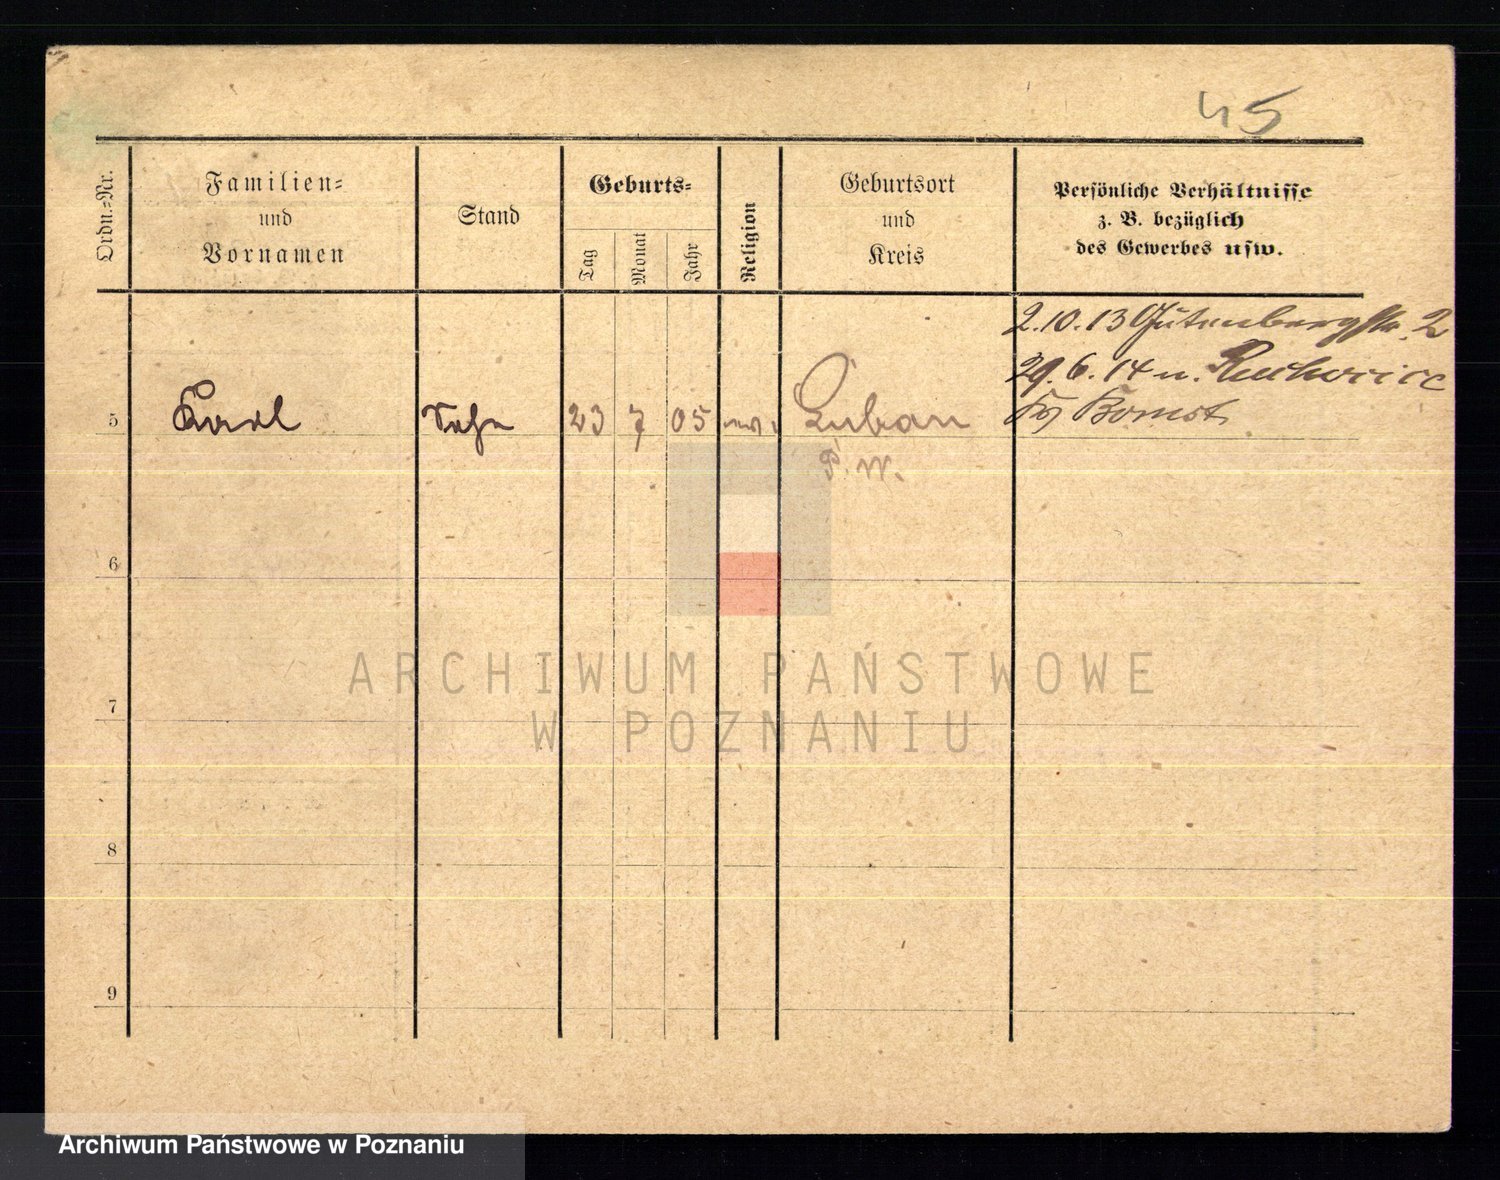 45
Ordn.=Nr.
Familien=
und
Vornamen
Stand
Geburts=
Tag
Monat
Jahr
Religion
Geburtsort
und
Kreis
Persönliche Verhältnisse
z. B. bezüglich
des Gewerbes usw.
2.10.13 Gutenbergstr. 2
29.6.14 n.
5 Karl Sohn 23 7 05 Luban
Kr Bomst
P. W.
6
7
8
9
ARCHIWUM PAŃSTWOWE
W POZNANIU
Archiwum Państwowe w Poznaniu